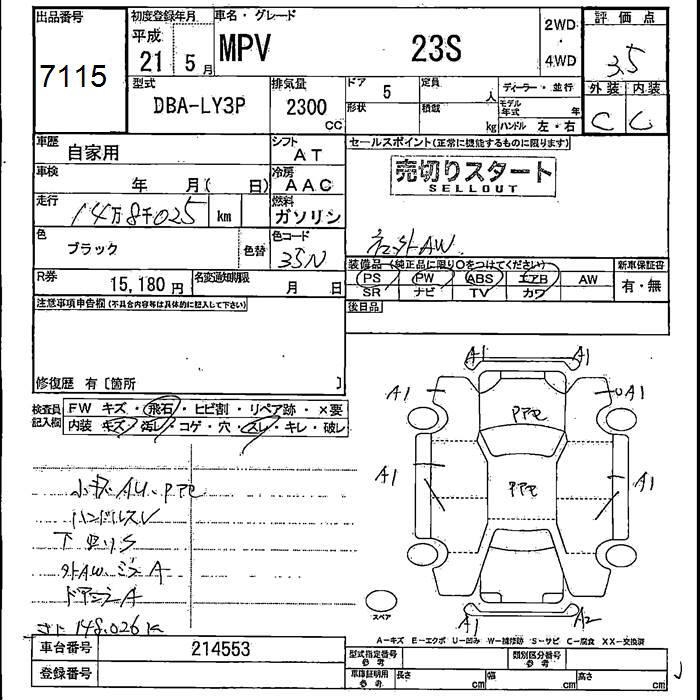 出品番号
7115
初度登録年月
平成
21 5 月
車名・グレード
MPV 23S
2WD
・
4WD
評価点
3.5
外装 内装
C C
型式
DBA-LY3P
排気量
2300
CC
ドア 5
定員 人
形状
積載 kg
ディーラー・並行
モデル年式 年
ハンドル 左・右
車歴
自家用
シフト
AT
車検
年 月( 日)
冷房
AAC
走行
14万8千025 km
燃料
ガソリン
色
ブラック
色替
色コード
35N
R券
15,180 円
名変通知期限
月 日
セールスポイント(正常に機能するものに限ります)
売切りスタート
SELLOUT
社外AW
装備品 (純正品に限り○をつけてください)
PS PW ABS エアB AW
SR ナビ TV カワ
新車保証書
有・無
後日品
注意事項申告欄(不具合内容等は具体的に記入して下さい)
修復歴 有 [箇所 ]
検査員
記入欄
FW キズ・飛石・ヒビ割・リペア跡・×要
内装 キズ・汚れ・コゲ・穴・スレ・キレ・破レ
小キズAU・PPセ
ハンドルスレ
下 S
外AW ミラーA
ドアミラーA
148,026K
A1 A1
A1 A1
PPセ
A1 A1
PPセ
A1 A2
スペア
A-キズ E-エクボ U-凹み W-補修跡 S-サビ C-腐食 XX-交換済
車台番号
214553
登録番号
型式指定番号
参考
類別区分番号
参考
車庫証明用
参考
長さ cm
幅 cm
高さ cm